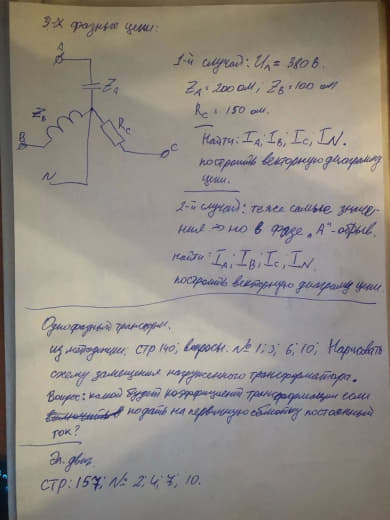 3-х фазные цепи:
A
Z_A
Z_B
R_C
B
C
N
1-й случай: U_A = 380 В.
Z_A = 200 ом; Z_B = 100 ом
R_C = 150 ом.
Найти: I_A; I_B; I_C; I_N.
построить векторную диаграмму
цепи.
2-й случай: те же самые значе-
ния → но в фазе "А" - обрыв.
найти: I_A; I_B; I_C; I_N.
построить векторную диаграмму цепи.
Однофазный трансформ.
из методички: стр 140, вопросы: № 1; 3; 6; 10; Нарисовать
схему замещения нагруженного трансформатора.
Вопрос: какой будет коэффициент трансформации если
подать на первичную обмотку постоянный
ток?
Эл. двиг.
стр: 157; № 2; 4; 7, 10.